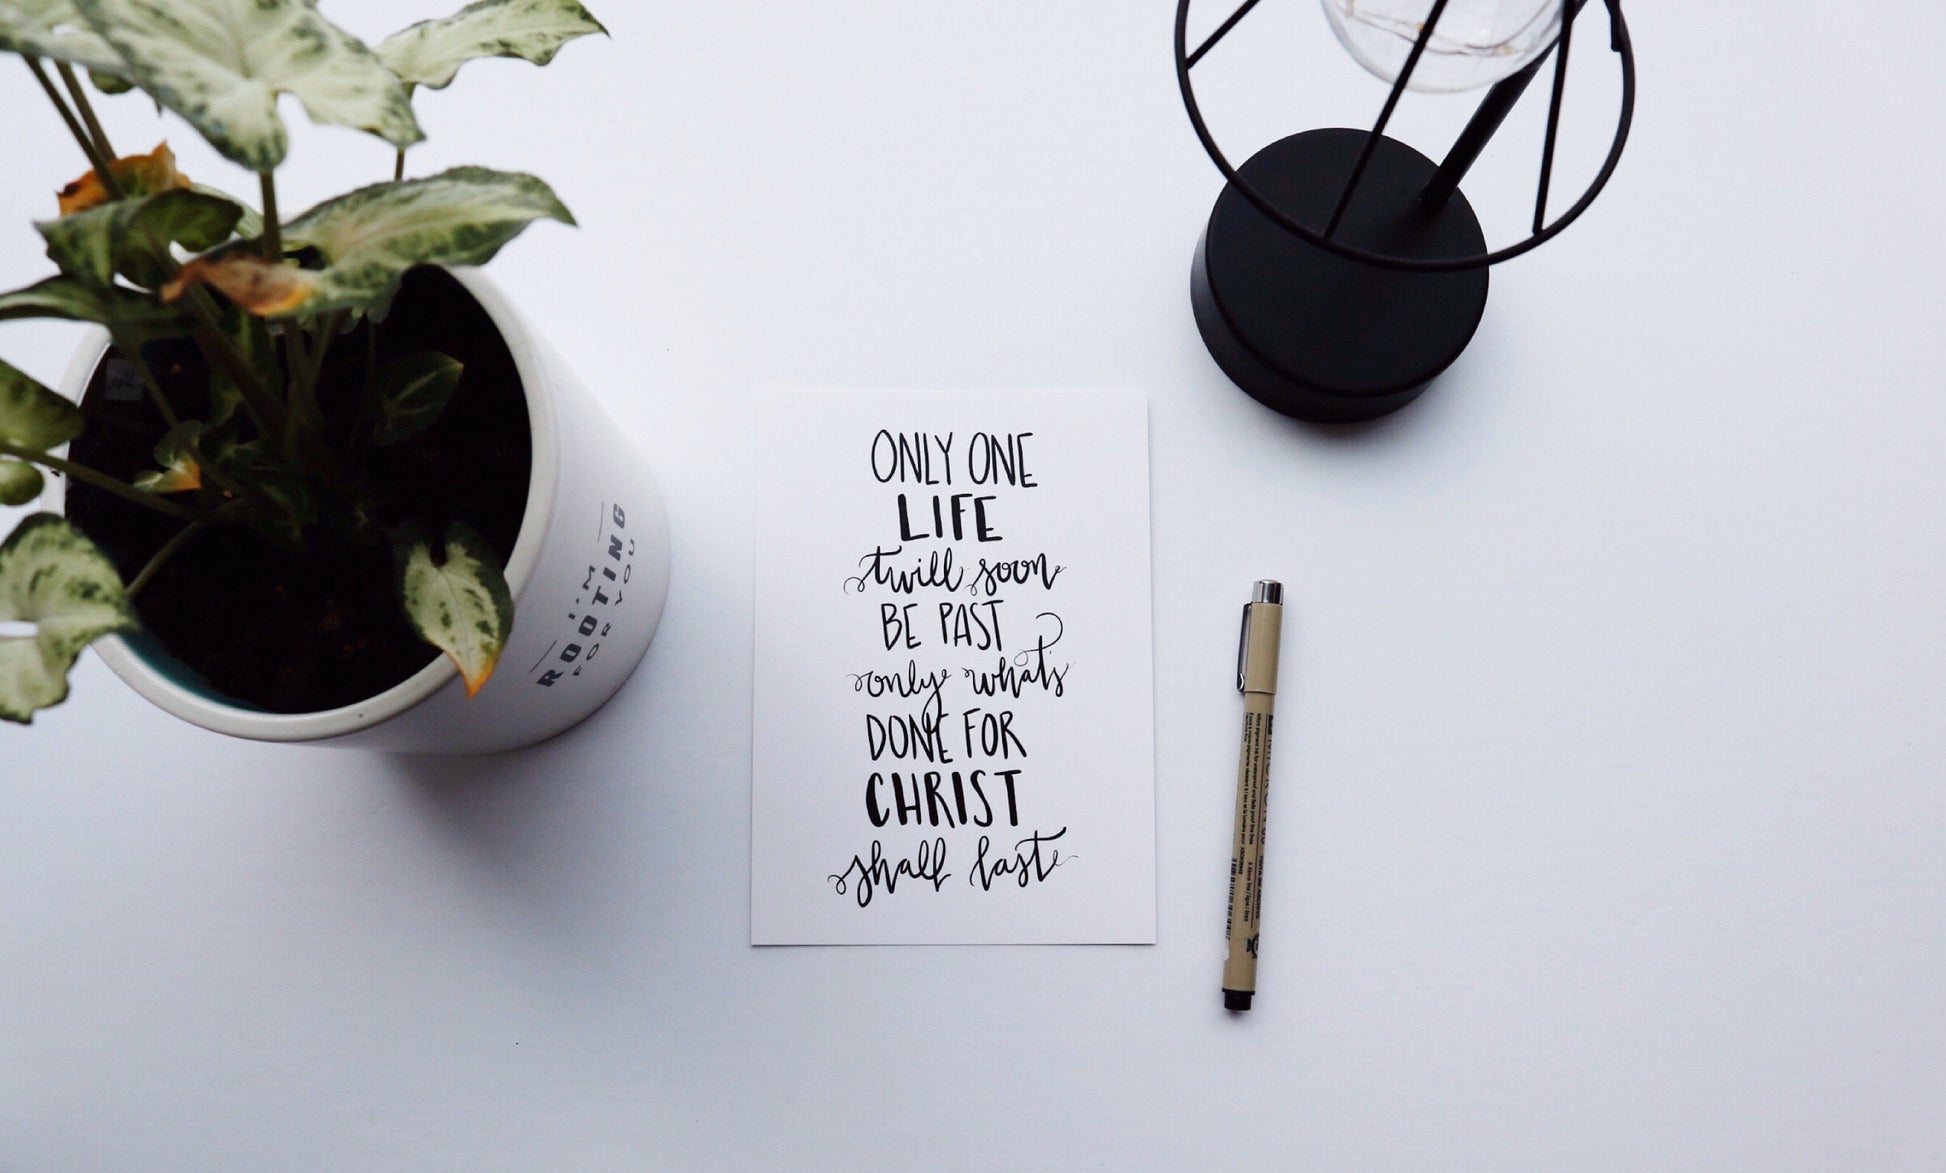 ONLY ONE
LIFE
twill soon
BE PAST
only what's
DONE FOR
CHRIST
shall last
I'M
ROOTING
FOR YOU
MICRON